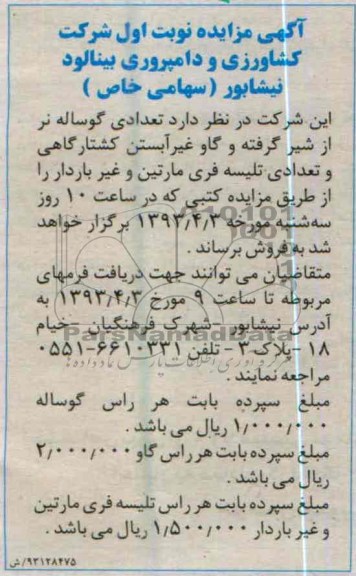 آگهی مزایده نوبت اول شرکت
کشاورزی و دامپروری بینالود
نیشابور ( سهامی خاص )
این شرکت در نظر دارد تعدادی گوساله نر
از شیر گرفته و گاو غیرآبستن کشتارگاهی
و تعدادی تلیسه فری مارتین و غیر باردار را
از طریق مزایده کتبی که در ساعت ۱۰ روز
سه‌شنبه مورخه ۱۳۹۳/۴/۳ برگزار خواهد
شد به فروش برساند .
متقاضیان می توانند جهت دریافت فرمهای
مربوطه تا ساعت ۹ مورخ ۱۳۹۳/۴/۳ به
آدرس نیشابور - شهرک فرهنگیان - خیام
۱۸ - پلاک ۳ - تلفن ۶۶۱۰۳۳۱-۰۵۵۱
مراجعه نمایند .
مبلغ سپرده بابت هر راس گوساله
۱/۰۰۰/۰۰۰ ریال می باشد .
مبلغ سپرده بابت هر راس گاو ۲/۰۰۰/۰۰۰
ریال می باشد .
مبلغ سپرده بابت هر راس تلیسه فری مارتین
و غیر باردار ۱/۵۰۰/۰۰۰ ریال می باشد .
۹۳۱۲۸۴۷۵/ش
ParsNamadData